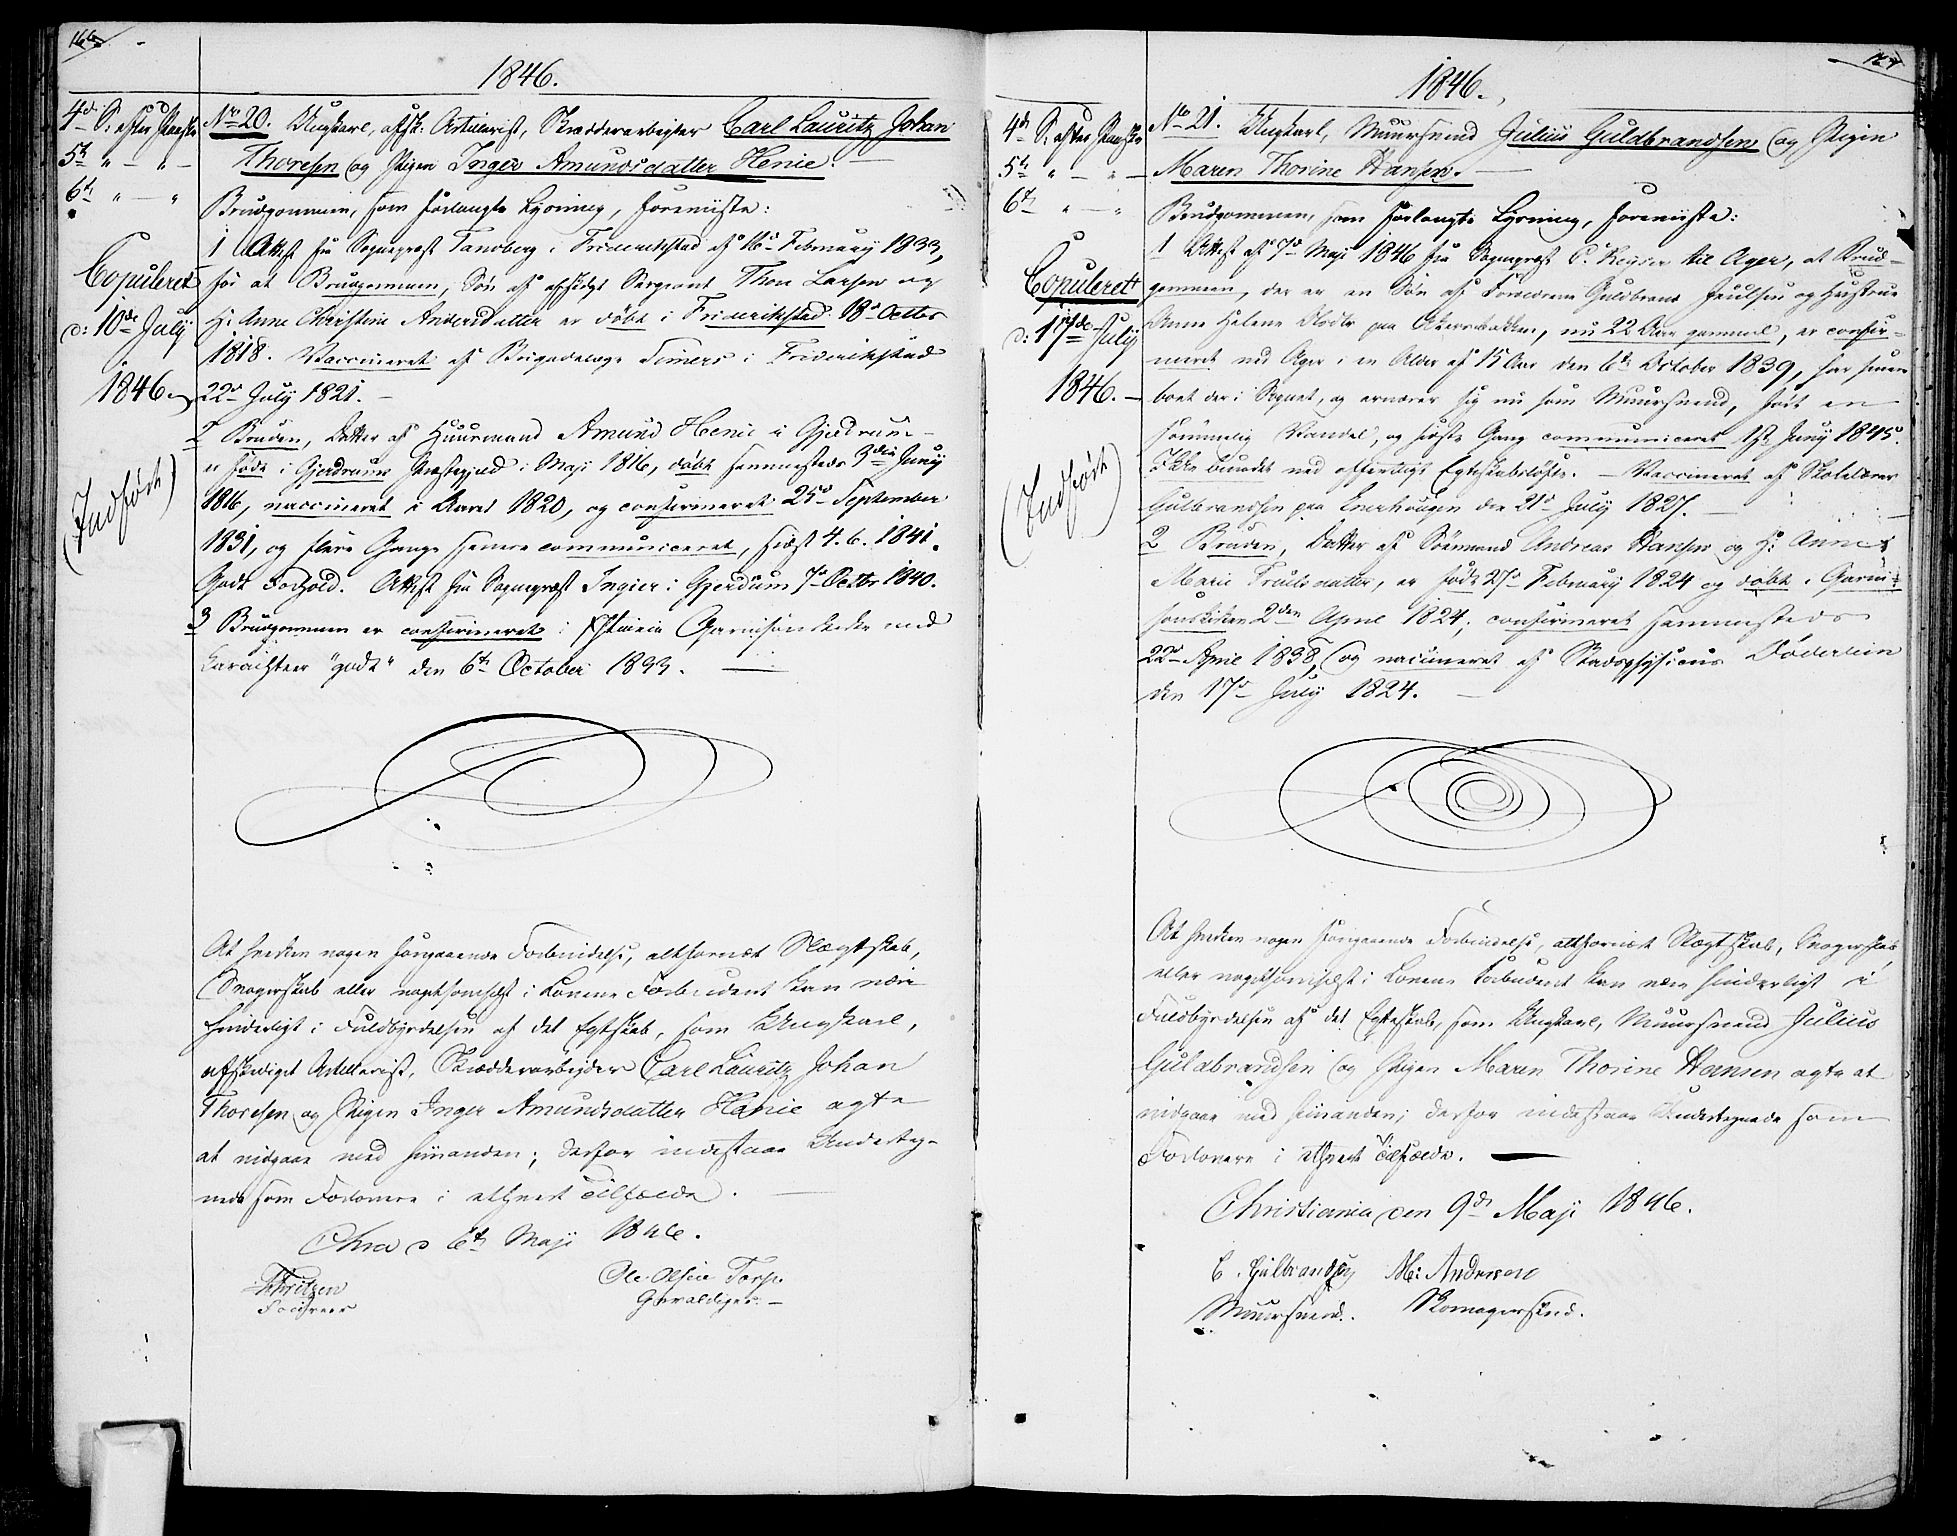 166
1846.
4de S: efter Paaske
5te " — " —
6te " — "
Copuleret
d: 10de July
1846.
(Indført)
No 20. Ungkarl, afsk: Artillerist, Skrædderarbeyder Carl Lauritz Johan
Thoresen og Pigen Inger Amundsdatter Henie. —
Brudgommen, som forlangte Lysning, foreviiste:
1 Attest fra Sognepræst Tandberg i Frederikstad af 16de February 1833,
for at Brudgommen, Søn af afskediget Sergeant Thore Larsen og
H: Anne Christine Andersdatter er døbt i Frederikstad 18de Octbr
1818. Vaccineret af Brigadelæge i Frederikstad
22de July 1821. —
2 Bruden, Datter af Huusmand Amund Henie i Gjerdrum —
er født i Gjerdrums Præstegjeld i Maji 1816, døbt sammesteds 9de Juny
1816, vaccineret i Aaret 1820, og confirmeret 25de September
1831, og flere Gange senere communiceret, sidst 4. 6. 1841.
Godt Forhold. Attest fra Sognepræst Ingier i Gjerdrum 7de Octbr 1840.
3 Brudgommen er confirmeret i Garnisonskirke med
Karachteer "godt" den 6te October 1833. —
At hverken nogen foregaaende Forbindelse, altfornært Slægtskab,
Svogerskab eller nogetsomhelst i Lovene Forbudent kan være
hinderligt i Fuldbyrdelsen af det Egteskab, som Ungkarl,
afskediget Artillerist, Skrædderarbeyder Carl Lauritz Johan
Thoresen og Pigen Inger Amundsdatter Henie agte
at indgaae med hinanden; derfor indestaae Underteg-
nede som Forlovere i ethvert Tilfælde. —
Chra d 6te Maji 1846.
Ole Olsen Torp.
Gevaldiger. —
167
1846.
4de S: efter Paaske
5te " — " —
6te " — "
Copuleret
d: 17de July
1846. —
(Indført)
No 21. Ungkarl, Muursvend Julius Guldbrandsen og Pigen
Maren Thorine Hansen. —
Brudgommen, som forlangte Lysning, foreviiste:
1 Attest af 7de Maji 1846 fra Sognepræst C. Keyser til Ager, at Brud-
gommen, der er en Søn af Forældrene Guldbrand Paulsen og Hustrue
Anne Helene paa Akersbakken, nu 22 Aar gammel, er confir-
meret ved Ager i en Alder af 15 Aar den 6te October 1839, har siden
boet der i Sognet, og ernærer sig nu som Muursvend, ført en
sømmelig Vandel, og sidste Gang communiceret 1ste Juny 1845.
Ikke bundet ved offentligt Egteskabsløfte. — Vaccineret af Skolelærer
Gulbrandsen paa Enerhougen den 21de July 1827. —
2 Bruden, Datter af Sømand Andreas Hansen og H: Anne
Marie Truls datter, er født 27de February 1824 og døbt i Garni-
sonskirken 2den April 1824, confirmeret sammesteds
22de April 1838, og vaccineret af Stadsphysicus Døderlein
den 17de July 1824. —
At hverken nogen foregaaende Forbindelse, altfornært Slægtskab, Svogerskab
eller nogetsomhelst i Lovene Forbudent kan være hinderligt i
Fuldbyrdelsen af det Egteskab, som Ungkarl, Muursvend Julius
Guldbrandsen og Pigen Maren Thorine Hansen agte at
indgaae med hinanden; derfor indestaae Undertegnede som
Forlovere i ethvert Tilfælde. —
Christiania den 9de Maji 1846.
E. Gulbrandsen M: Andersen
Muursvend. Skomagersvend.